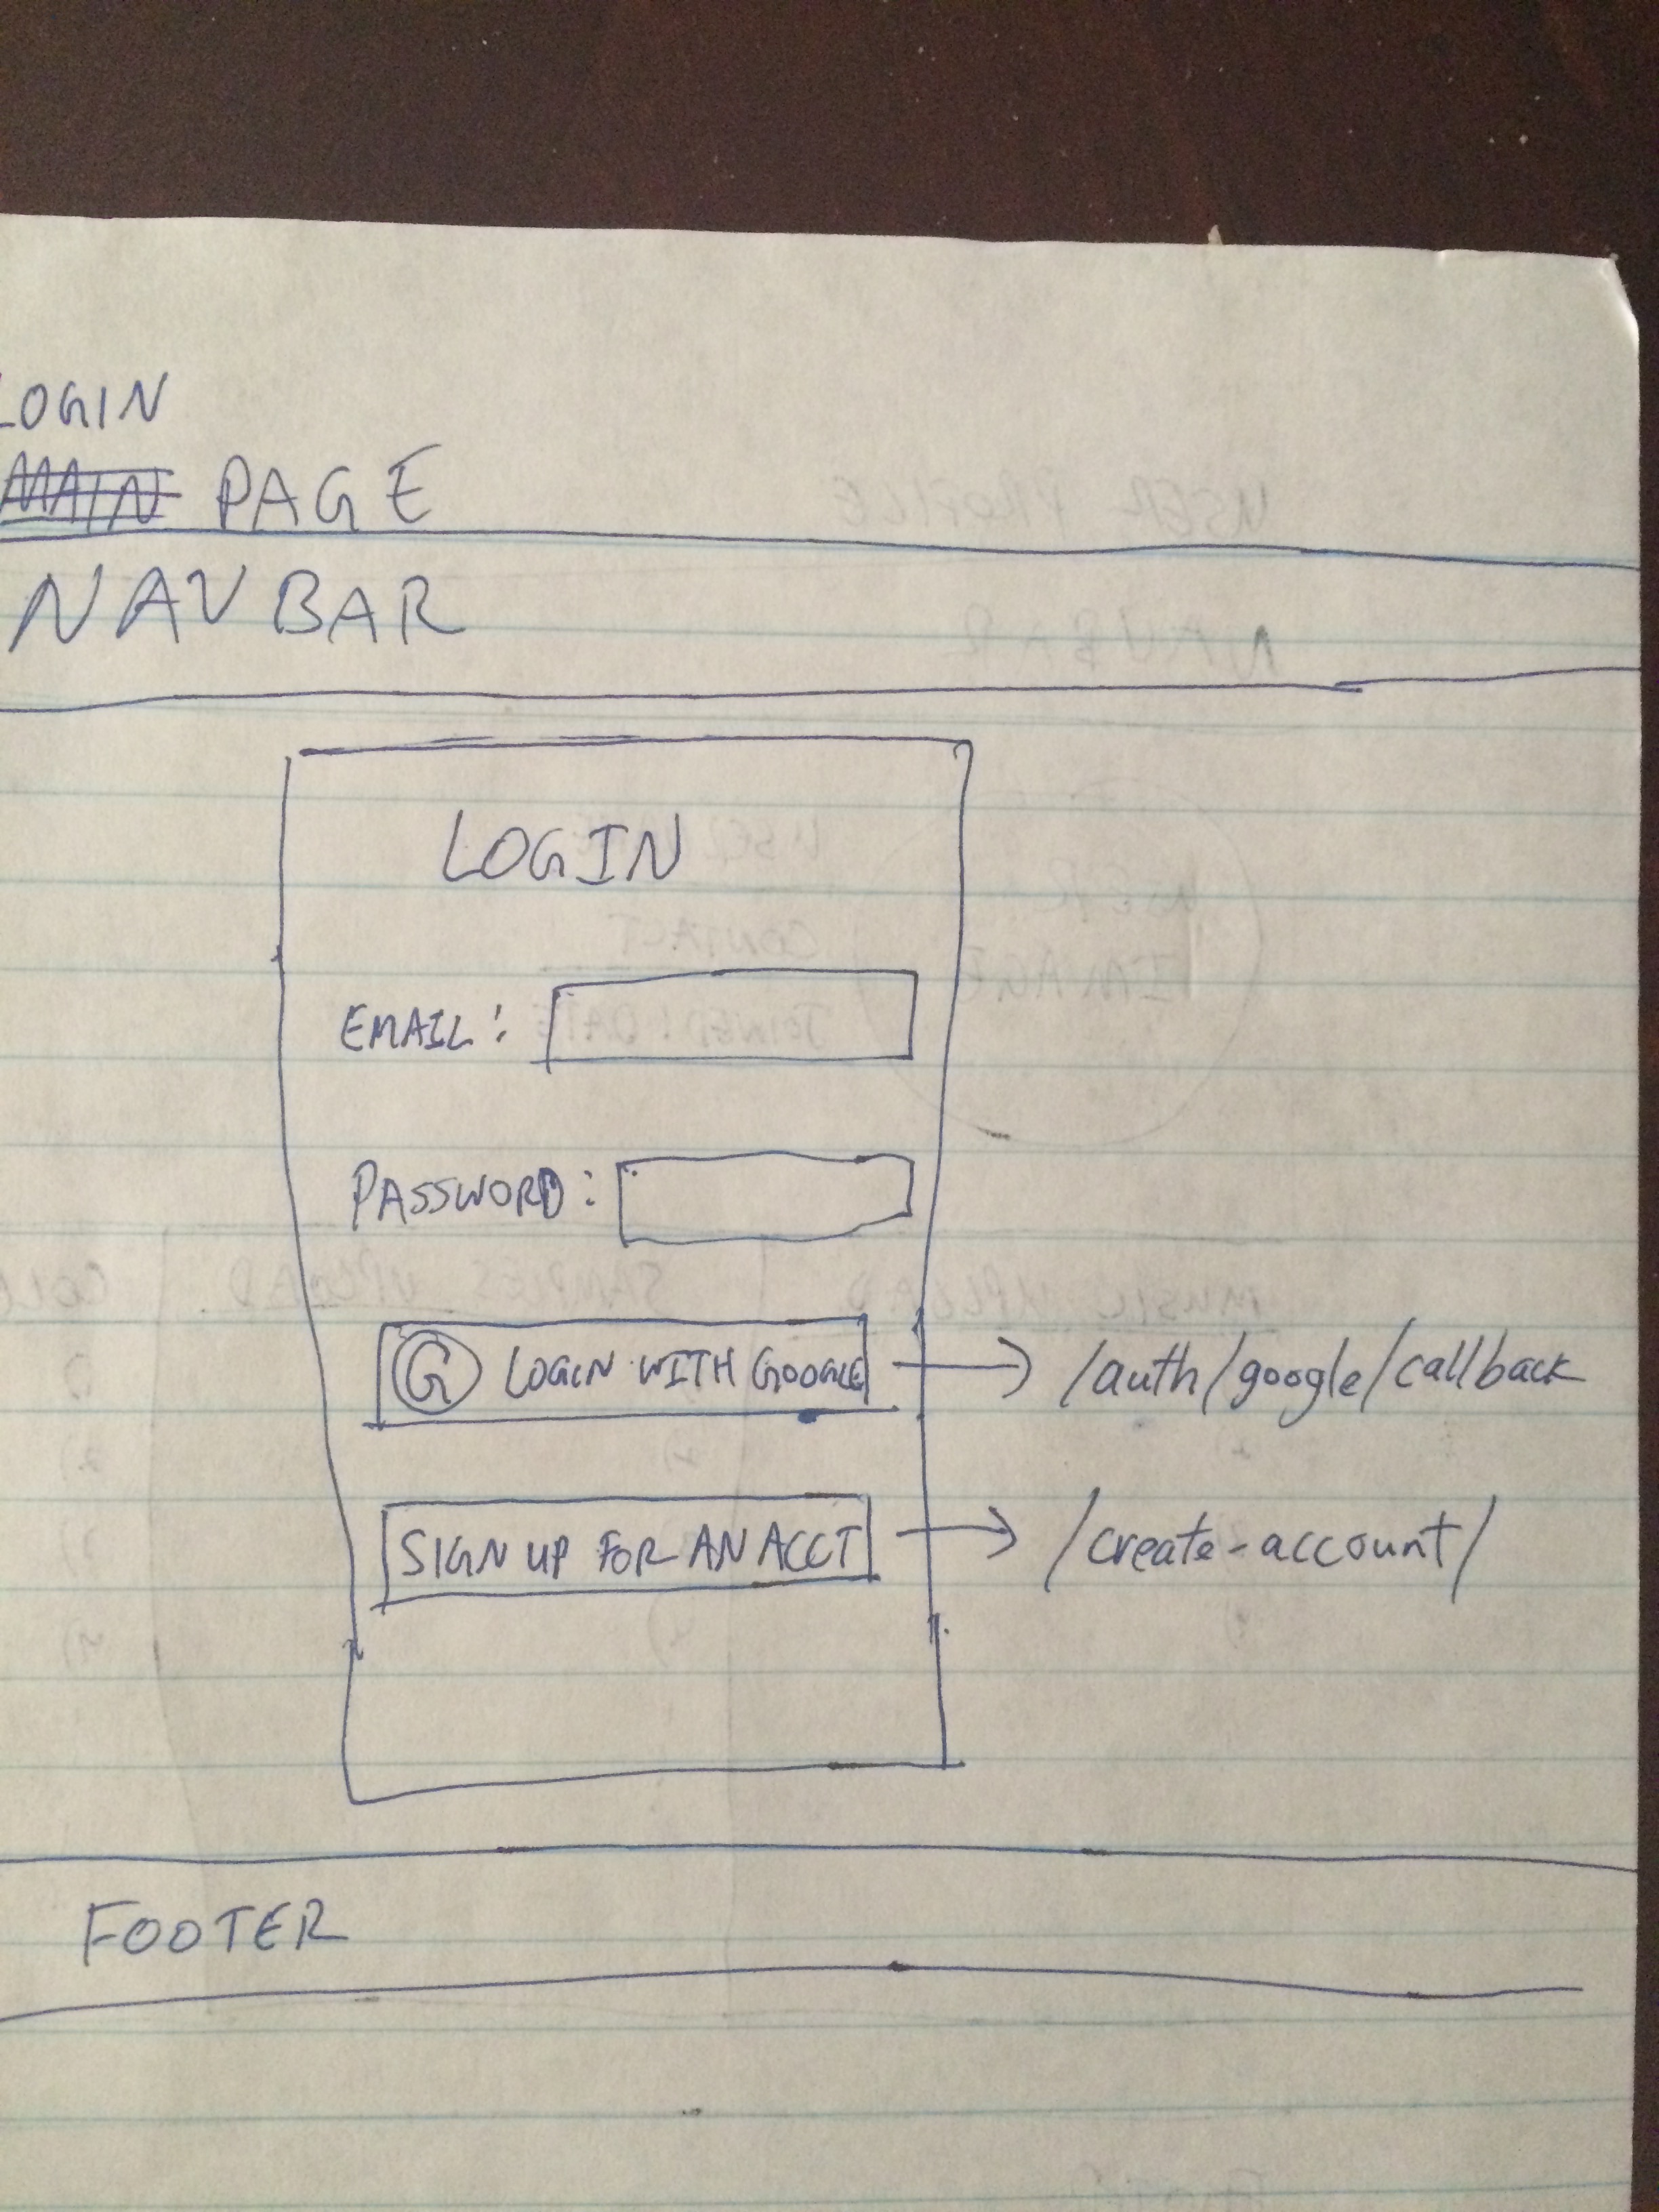 LOGIN
PAGE
NAVBAR
LOGIN
EMAIL:
PASSWORD:
G LOGIN WITH GOOGLE → /auth/google/callback
SIGN UP FOR AN ACCT → /create-account/
FOOTER